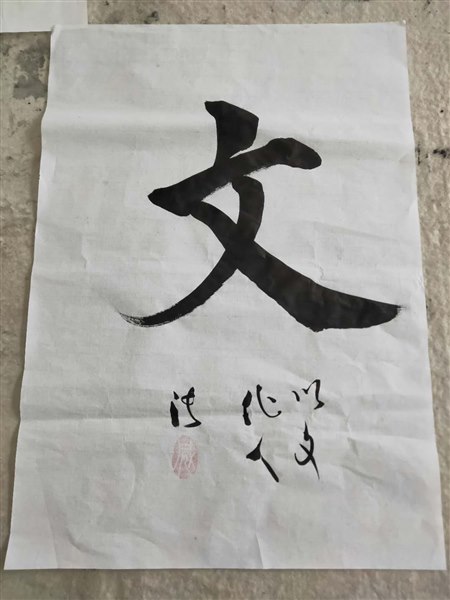 文
以文
化人